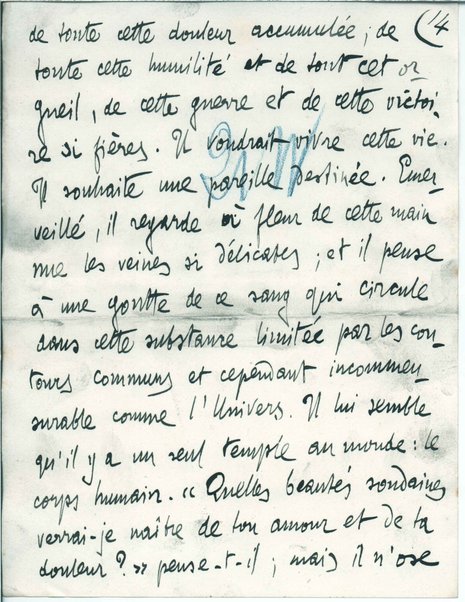 14
de toute cette douleur accumulée, de
toute cette humilité et de tout cet or-
gueil, de cette guerre et de cette victoi-
re si fières. Il voudrait vivre cette vie.
Il souhaite une pareille destinée. Emer-
veillé, il regarde à fleur de cette main
nue les veines si délicates ; et il pense
à une goutte de ce sang qui circule
dans cette substance limitée par les con-
tours communs et cependant incommen-
surable comme l'Univers. Il lui semble
qu'il y a un seul temple au monde : le
corps humain. « Quelles beautés soudaines
verrai-je naître de ton amour et de ta
douleur ? » pense-t-il ; mais il n'ose